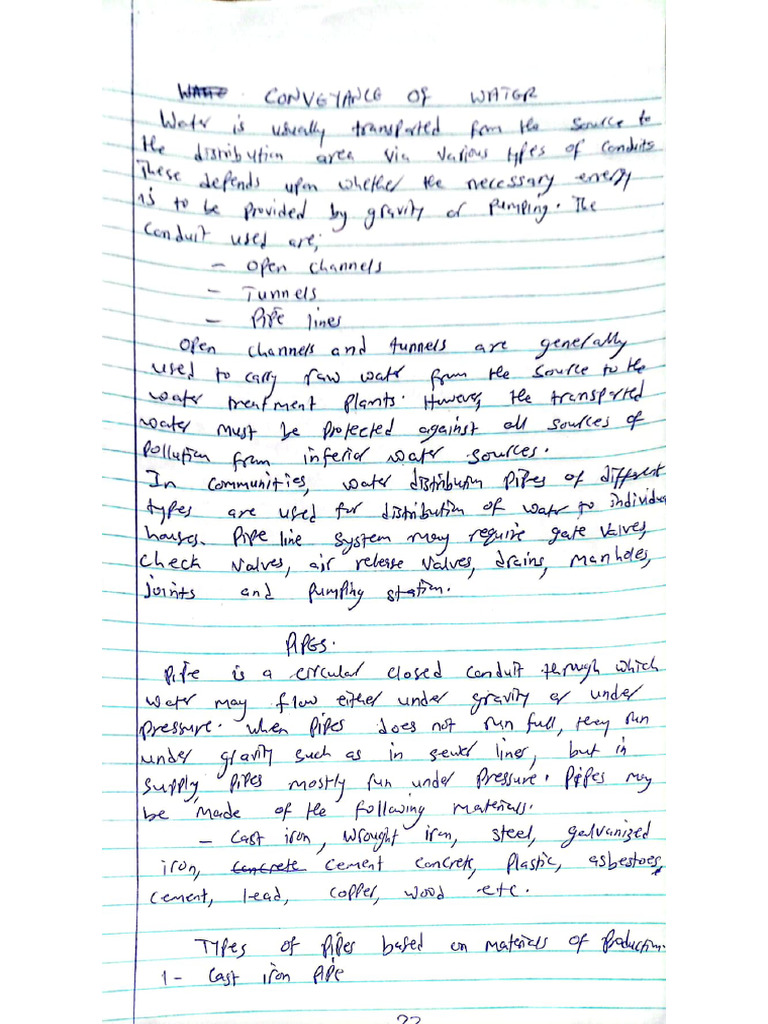 CONVEYANCE OF WATER
Water is usually transported from the source to
the distribution area via various types of conduits
These depends upon whether the necessary energy
is to be provided by gravity or pumping. The
conduit used are;
- Open channels
- Tunnels
- Pipe lines
Open channels and tunnels are generally
used to carry raw water from the source to the
water treatment plants. However, the transported
water must be protected against all sources of
pollution from inferior water sources.
In communities, water distribution pipes of different
types are used for distribution of water to individual
houses. Pipe line system may require gate valves,
check valves, air release valves, drains, manholes,
joints and pumping station.
PIPES.
Pipe is a circular closed conduit through which
water may flow either under gravity or under
pressure. When pipes does not run full, they run
under gravity such as in sewer lines, but in
supply pipes mostly run under pressure. Pipes may
be made of the following materials.
- Cast iron, wrought iron, steel, galvanized
iron, concrete cement concrete, plastic, asbestoes,
cement, lead, copper, wood etc.
Types of pipes based on materials of production.
1- Cast iron pipe
22